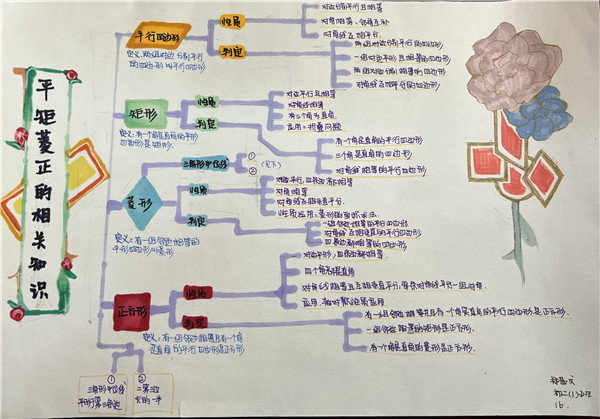 平矩菱正的相关知识
平行四边形
定义:两组对边分别平行
的四边形叫平行四边形
性质
对边分别平行且相等
对角相等,邻角互补
对角线互相平分
判定
两组对边分别平行的四边形
一组对边平行且相等的四边形
两组对边分别相等的四边形
对角线互相平分的四边形
矩形
定义:有一个角是直角的平行
四边形是矩形.
性质
对边平行且相等
对角线相等
有三个角为直角.
应用:折叠问题
判定
有一个角是直角的平行四边形
三个角是直角的四边形
对角线相等的平行四边形
三角形中位线
①
②
(见下)
菱形
定义:有一组邻边相等的
平行四边形叫菱形
性质
对边平行,四条边都相等
对角相等
对角线互相垂直平分.
判定
一组邻边相等的平行四边形
对角线互相垂直的平行四边形
四条边都相等的四边形
正方形
定义:有一组邻边相等且有一个角
是直角的平行四边形是正方形
性质
对边平行,四条边都相等
四个角都是直角
对角线相等且互相垂直平分,每条对角线平分一组对角.
判定
有一组邻边相等且有一个角是直角的平行四边形是正方形.
一组邻边相等的矩形是正方形.
有一个角是直角的菱形是正方形.
①
三角形中位线
平行第三条边
②
=第三边
长的一半
16.